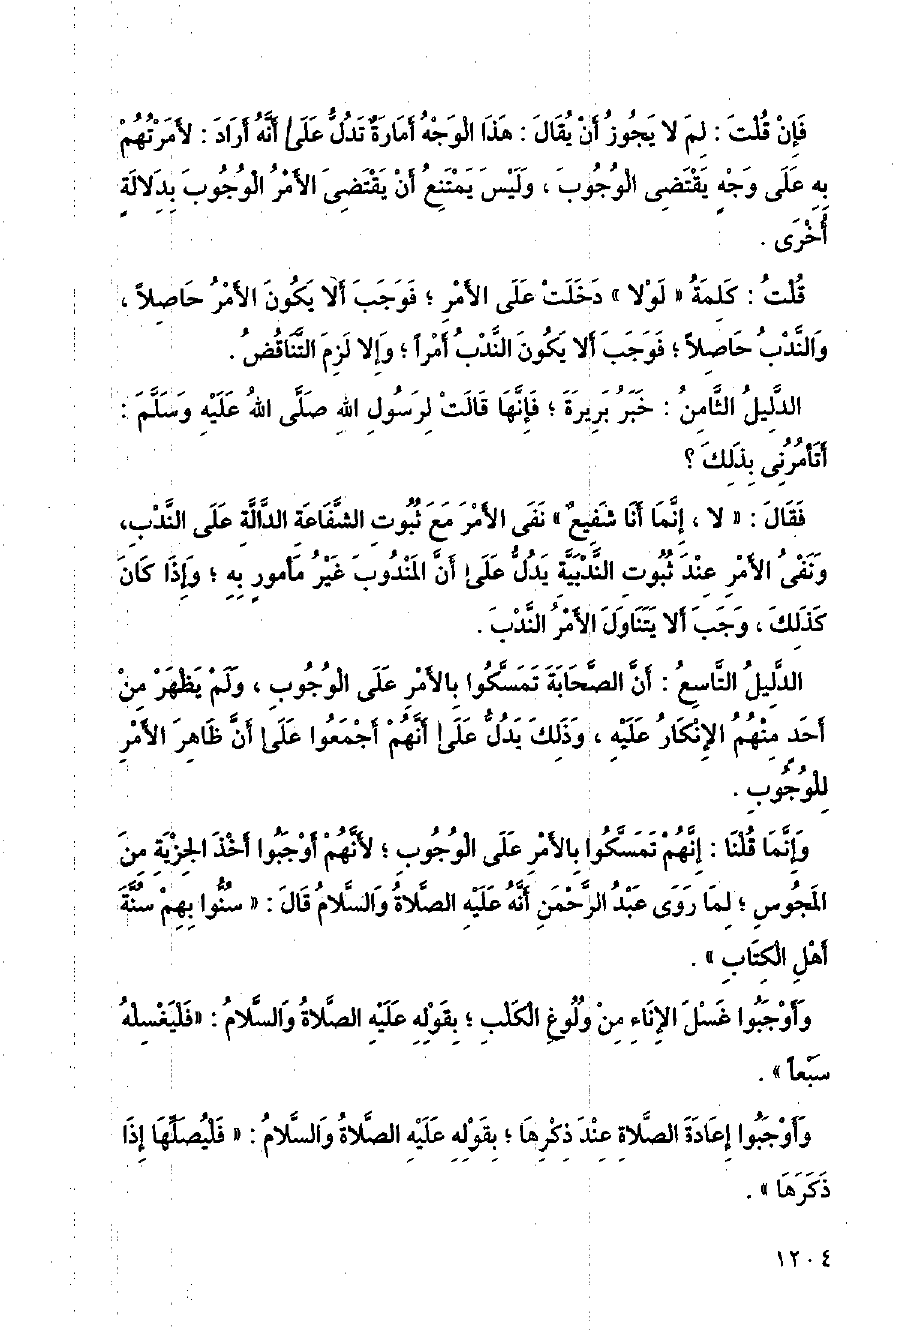 فَإِنْ قُلْتَ : لِمَ لا يَجُوزُ أَنْ يُقَالَ : هَذَا الْوَجْهُ أَمَارَةٌ تَدُلُّ عَلَى أَنَّهُ أَرَادَ : لأَمَرْتُهُمْ
بِهِ عَلَى وَجْهٍ يَقْتَضِى الْوُجُوبَ ، وَلَيْسَ يَمْتَنِعُ أَنْ يَقْتَضِىَ الأَمْرُ الْوُجُوبَ بِدَلالَةٍ
أُخْرَى .
قُلْتُ : كَلِمَةُ « لَوْلا » دَخَلَتْ عَلَى الأَمْرِ ؛ فَوَجَبَ أَلا يَكُونَ الأَمْرُ حَاصِلاً ،
وَالنَّدْبُ حَاصِلاً ؛ فَوَجَبَ أَلا يَكُونَ النَّدْبُ أَمْراً ؛ وَإِلا لَزِمَ التَّنَاقُضُ .
الدَّلِيلُ الثَّامِنُ : خَبَرُ بَرِيرَةَ ؛ فَإِنَّهَا قَالَتْ لِرَسُولِ اللهِ صَلَّى اللهُ عَلَيْهِ وَسَلَّمَ :
أَتَأْمُرُنِى بِذَلِكَ ؟
فَقَالَ : « لا ، إِنَّمَا أَنَا شَفِيعٌ » نَفَى الأَمْرَ مَعَ ثُبُوتِ الشَّفَاعَةِ الدَّالَّةِ عَلَى النَّدْبِ،
وَنَفْىُ الأَمْرِ عِنْدَ ثُبُوتِ النَّدْبِيَّةِ يَدُلُّ عَلَى أَنَّ الْمَنْدُوبَ غَيْرُ مَأْمُورٍ بِهِ ؛ وَإِذَا كَانَ
كَذَلِكَ ، وَجَبَ أَلا يَتَنَاوَلَ الأَمْرُ النَّدْبَ .
الدَّلِيلُ التَّاسِعُ : أَنَّ الصَّحَابَةَ تَمَسَّكُوا بِالأَمْرِ عَلَى الْوُجُوبِ ، وَلَمْ يَظْهَرْ مِنْ
أَحَدٍ مِنْهُمُ الإِنْكَارُ عَلَيْهِ ، وَذَلِكَ يَدُلُّ عَلَى أَنَّهُمْ أَجْمَعُوا عَلَى أَنَّ ظَاهِرَ الأَمْرِ
لِلْوُجُوبِ .
وَإِنَّمَا قُلْنَا : إِنَّهُمْ تَمَسَّكُوا بِالأَمْرِ عَلَى الْوُجُوبِ ؛ لأَنَّهُمْ أَوْجَبُوا أَخْذَ الْجِزْيَةِ مِنَ
الْمَجُوسِ ؛ لِمَا رَوَى عَبْدُ الرَّحْمَنِ أَنَّهُ عَلَيْهِ الصَّلاةُ وَالسَّلامُ قَالَ : « سُنُّوا بِهِمْ سُنَّةَ
أَهْلِ الْكِتَابِ » .
وَأَوْجَبُوا غَسْلَ الإِنَاءِ مِنْ وُلُوغِ الْكَلْبِ ؛ بِقَوْلِهِ عَلَيْهِ الصَّلاةُ وَالسَّلامُ : «فَلْيَغْسِلْهُ
سَبْعاً » .
وَأَوْجَبُوا إِعَادَةَ الصَّلاةِ عِنْدَ ذِكْرِهَا ؛ بِقَوْلِهِ عَلَيْهِ الصَّلاةُ وَالسَّلامُ : « فَلْيُصَلِّهَا إِذَا
ذَكَرَهَا » .
١٢٠٤